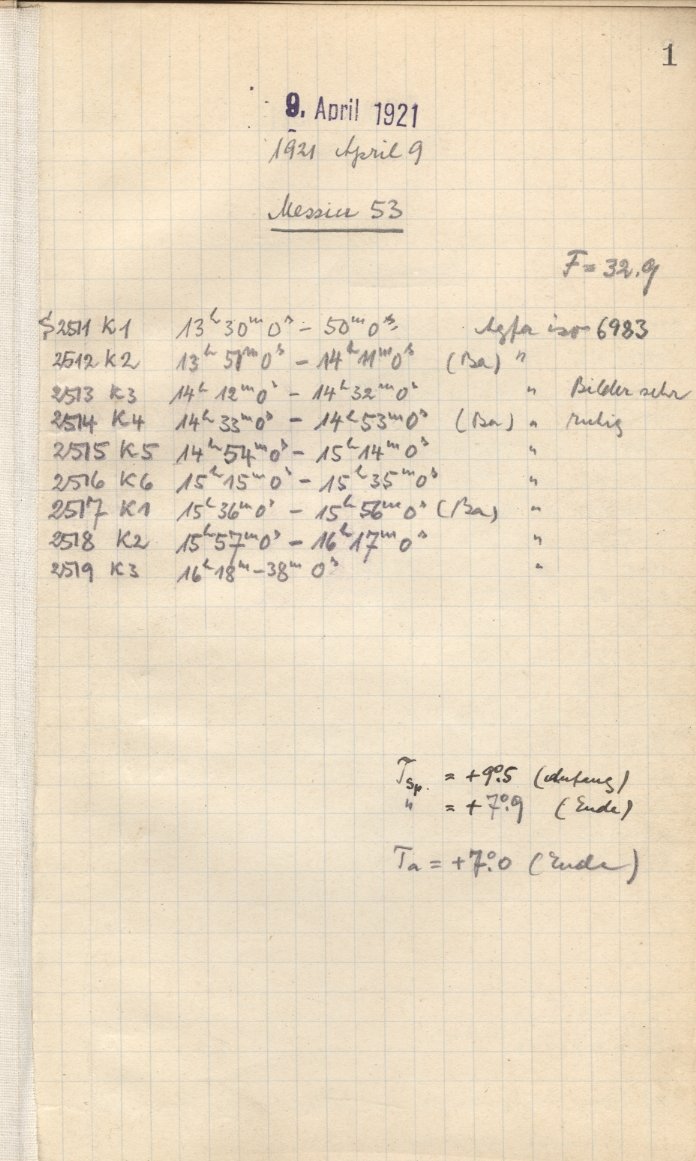 1
9. April 1921
1921 April 9
Messier 53
F = 32.9
S 2511 K1 13h 30m 0s – 50m 0s Agfa iso 6983
2512 K2 13h 51m 0s – 14h 11m 0s (Ba) "
2513 K3 14h 12m 0s – 14h 32m 0s " Bilder sehr
2514 K4 14h 33m 0s – 14h 53m 0s (Ba) " ruhig
2515 K5 14h 54m 0s – 15h 14m 0s "
2516 K6 15h 15m 0s – 15h 35m 0s "
2517 K1 15h 36m 0s – 15h 56m 0s (Ba) "
2518 K2 15h 57m 0s – 16h 17m 0s "
2519 K3 16h 18m – 38m 0s "
Tsp. = +9°.5 (Anfang)
" = +7°.9 (Ende)
Ta = +7°.0 (Ende)